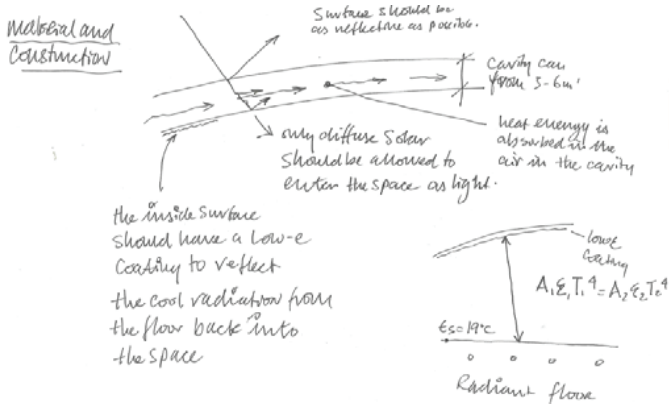 Material and
Construction
Surface should be
as reflective as possible.
Cavity can
from 3-6m'
heat energy is
absorbed in the
air in the cavity
only diffuse Solar
Should be allowed to
enter the space as light.
the inside surface
should have a low-e
Coating to reflect
the cool radiation from
the floor back into
the space
low E
coating
A₁ε₁T₁⁴=A₂ε₂T₂⁴
ts=19°c
Radiant floor